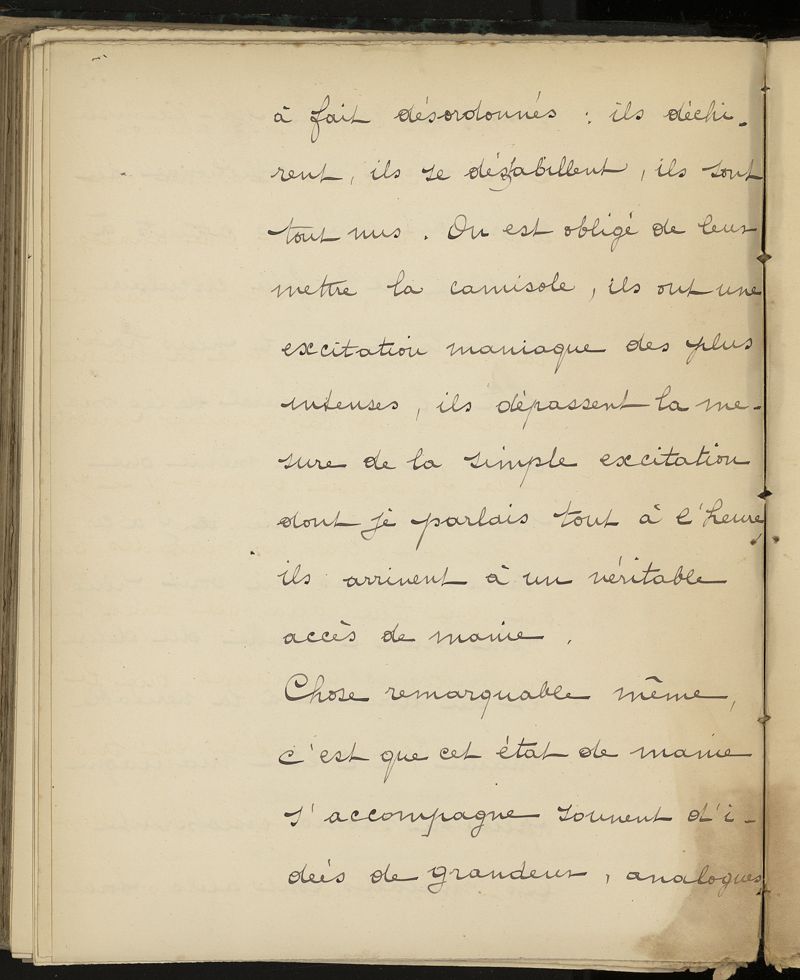 à fait désordonnés : ils déchi-
rent, ils se déshabillent, ils sont
tout nus. On est obligé de leur
mettre la camisole, ils ont une
excitation maniaque des plus
intenses, ils dépassent la me-
sure de la simple excitation
dont je parlais tout à l'heure,
ils arrivent à un véritable
accès de manie.
Chose remarquable même,
c'est que cet état de manie
s'accompagne souvent d'i-
deés de grandeur, analogues